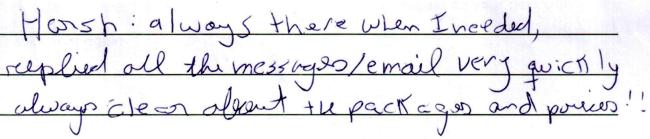 Harsh: always there when I needed,
replied all the messages/email very quickly
always clear about the packages and policies!!